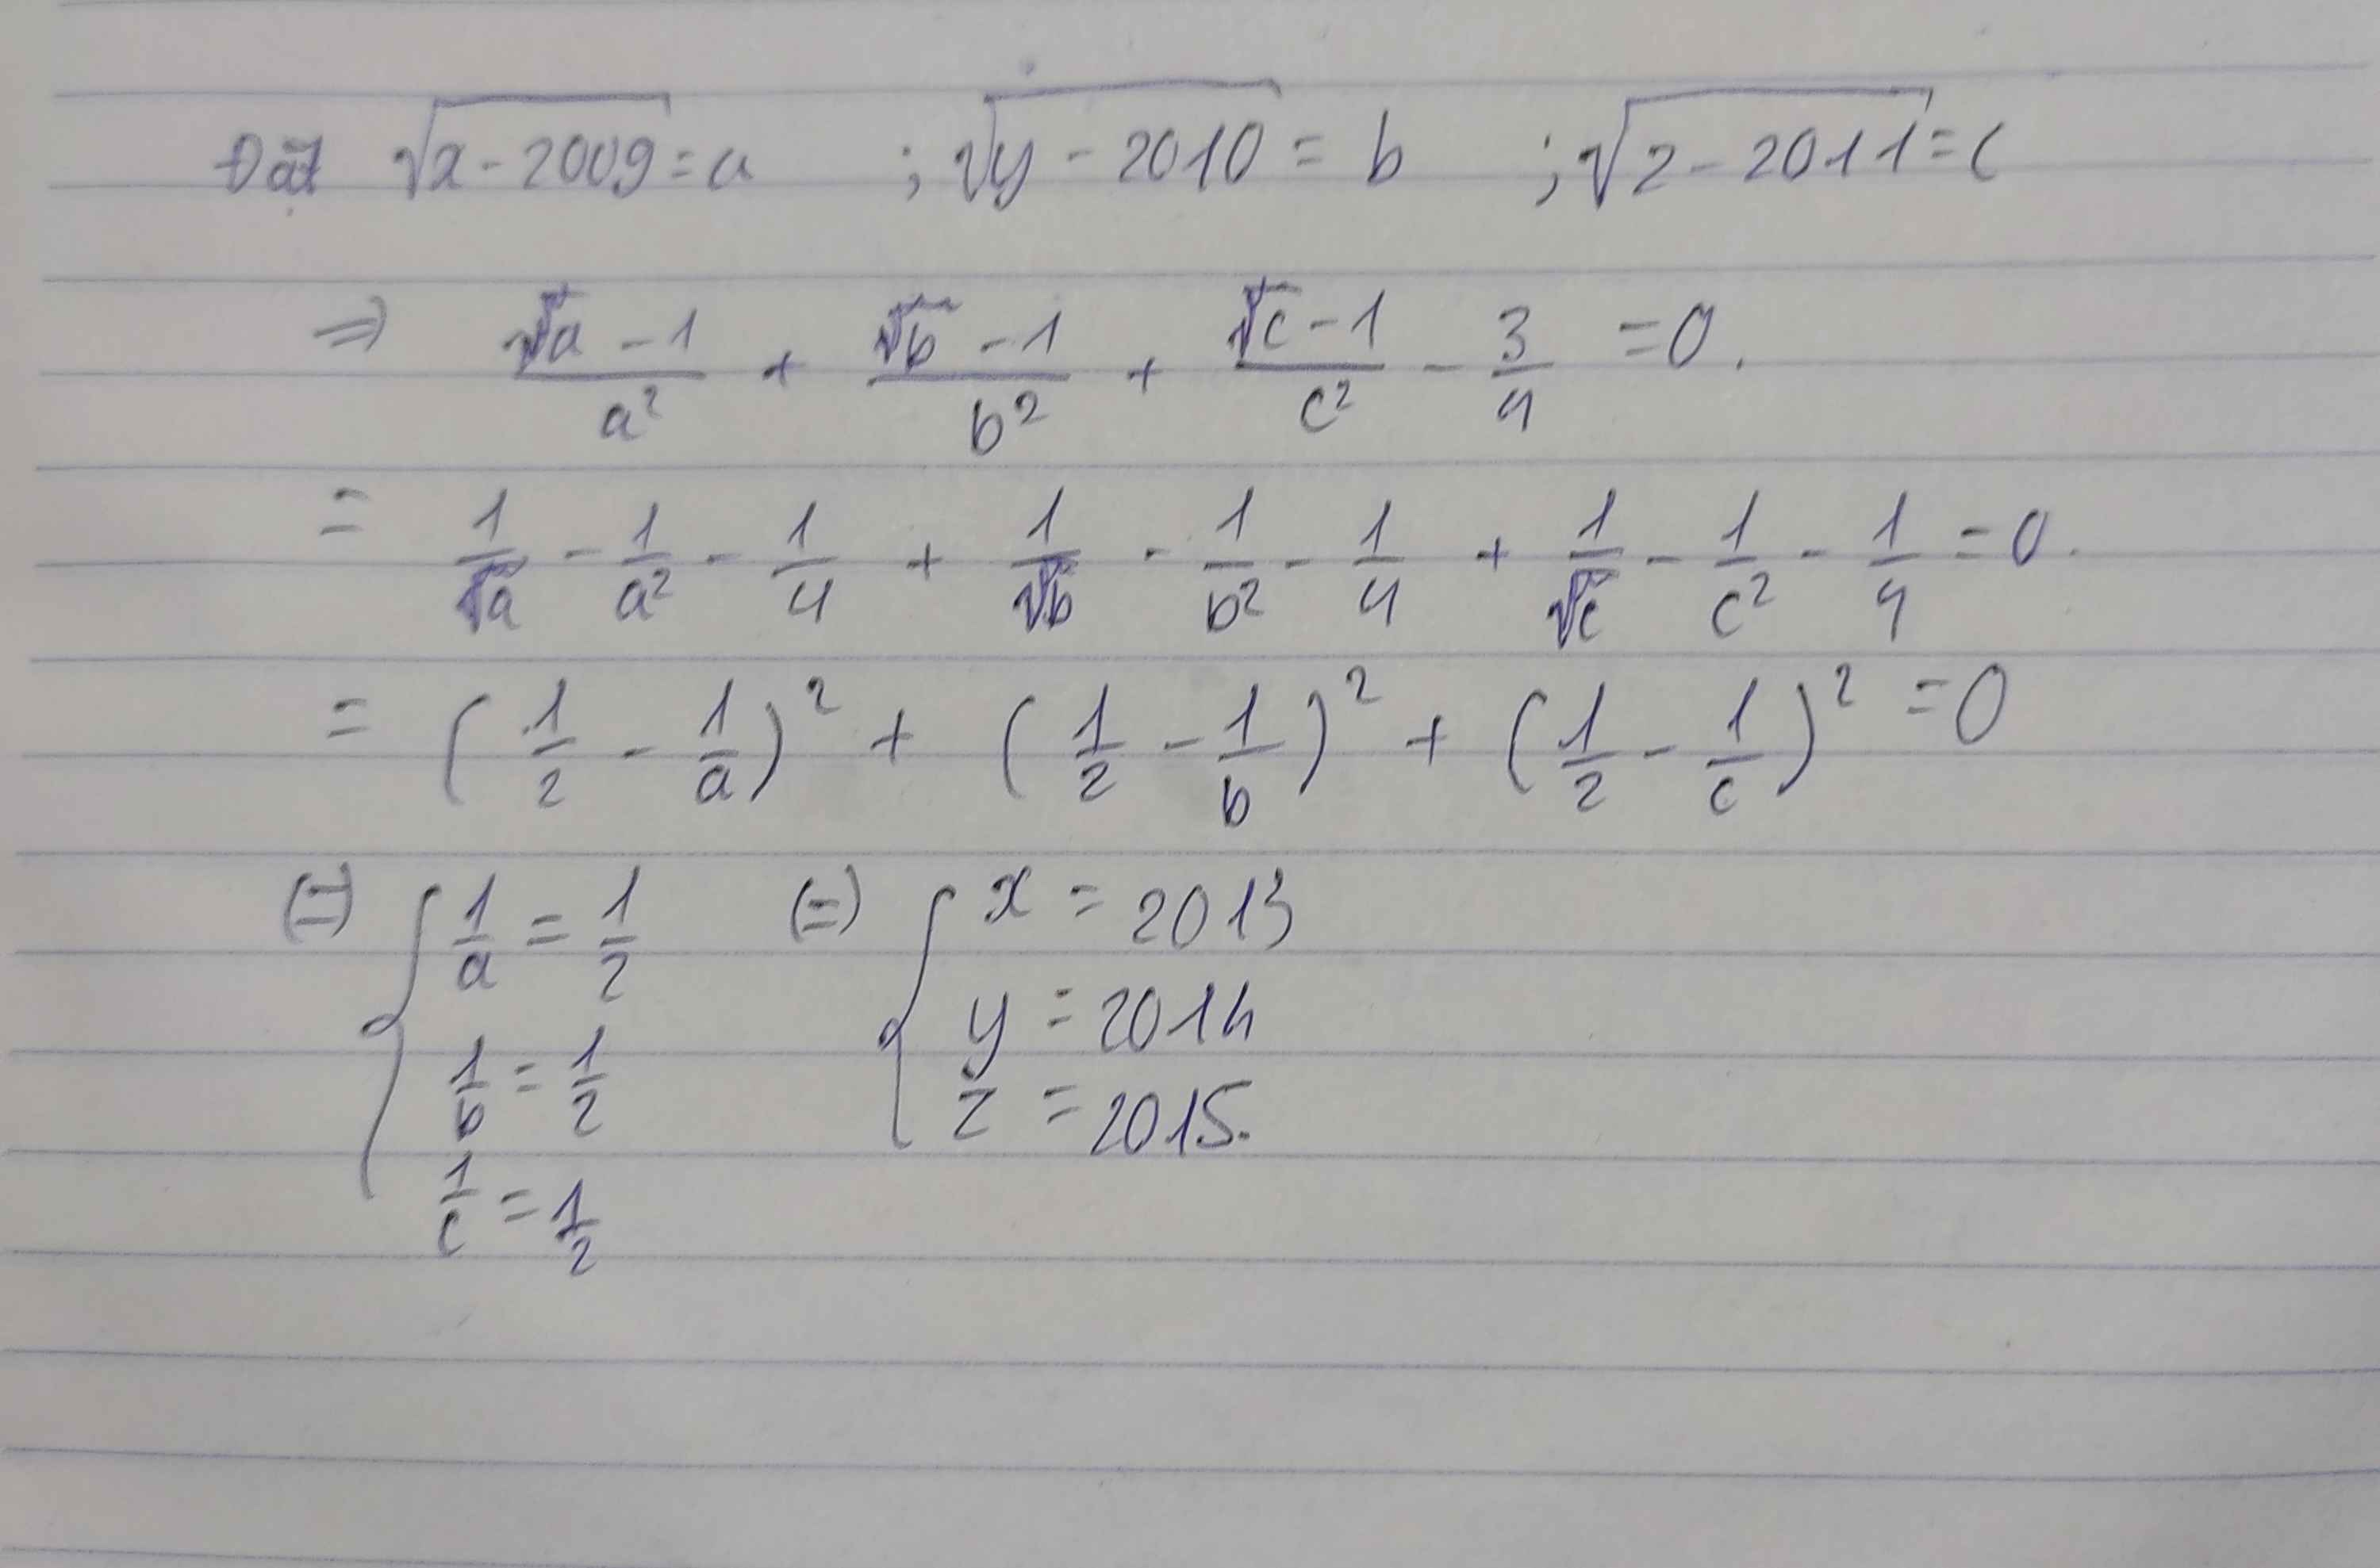 Đặt √(x - 2009) = a ; √(y - 2010) = b ; √(z - 2011) = c
⇒ (√a - 1)/a² + (√b - 1)/b² + (√c - 1)/c² - 3/4 = 0.
= 1/√a - 1/a² - 1/4 + 1/√b - 1/b² - 1/4 + 1/√c - 1/c² - 1/4 = 0.
= (1/2 - 1/a)² + (1/2 - 1/b)² + (1/2 - 1/c)² = 0
(=) { 1/a = 1/2 (=) { x = 2013
1/b = 1/2 y = 2014
1/c = 1/2 z = 2015.